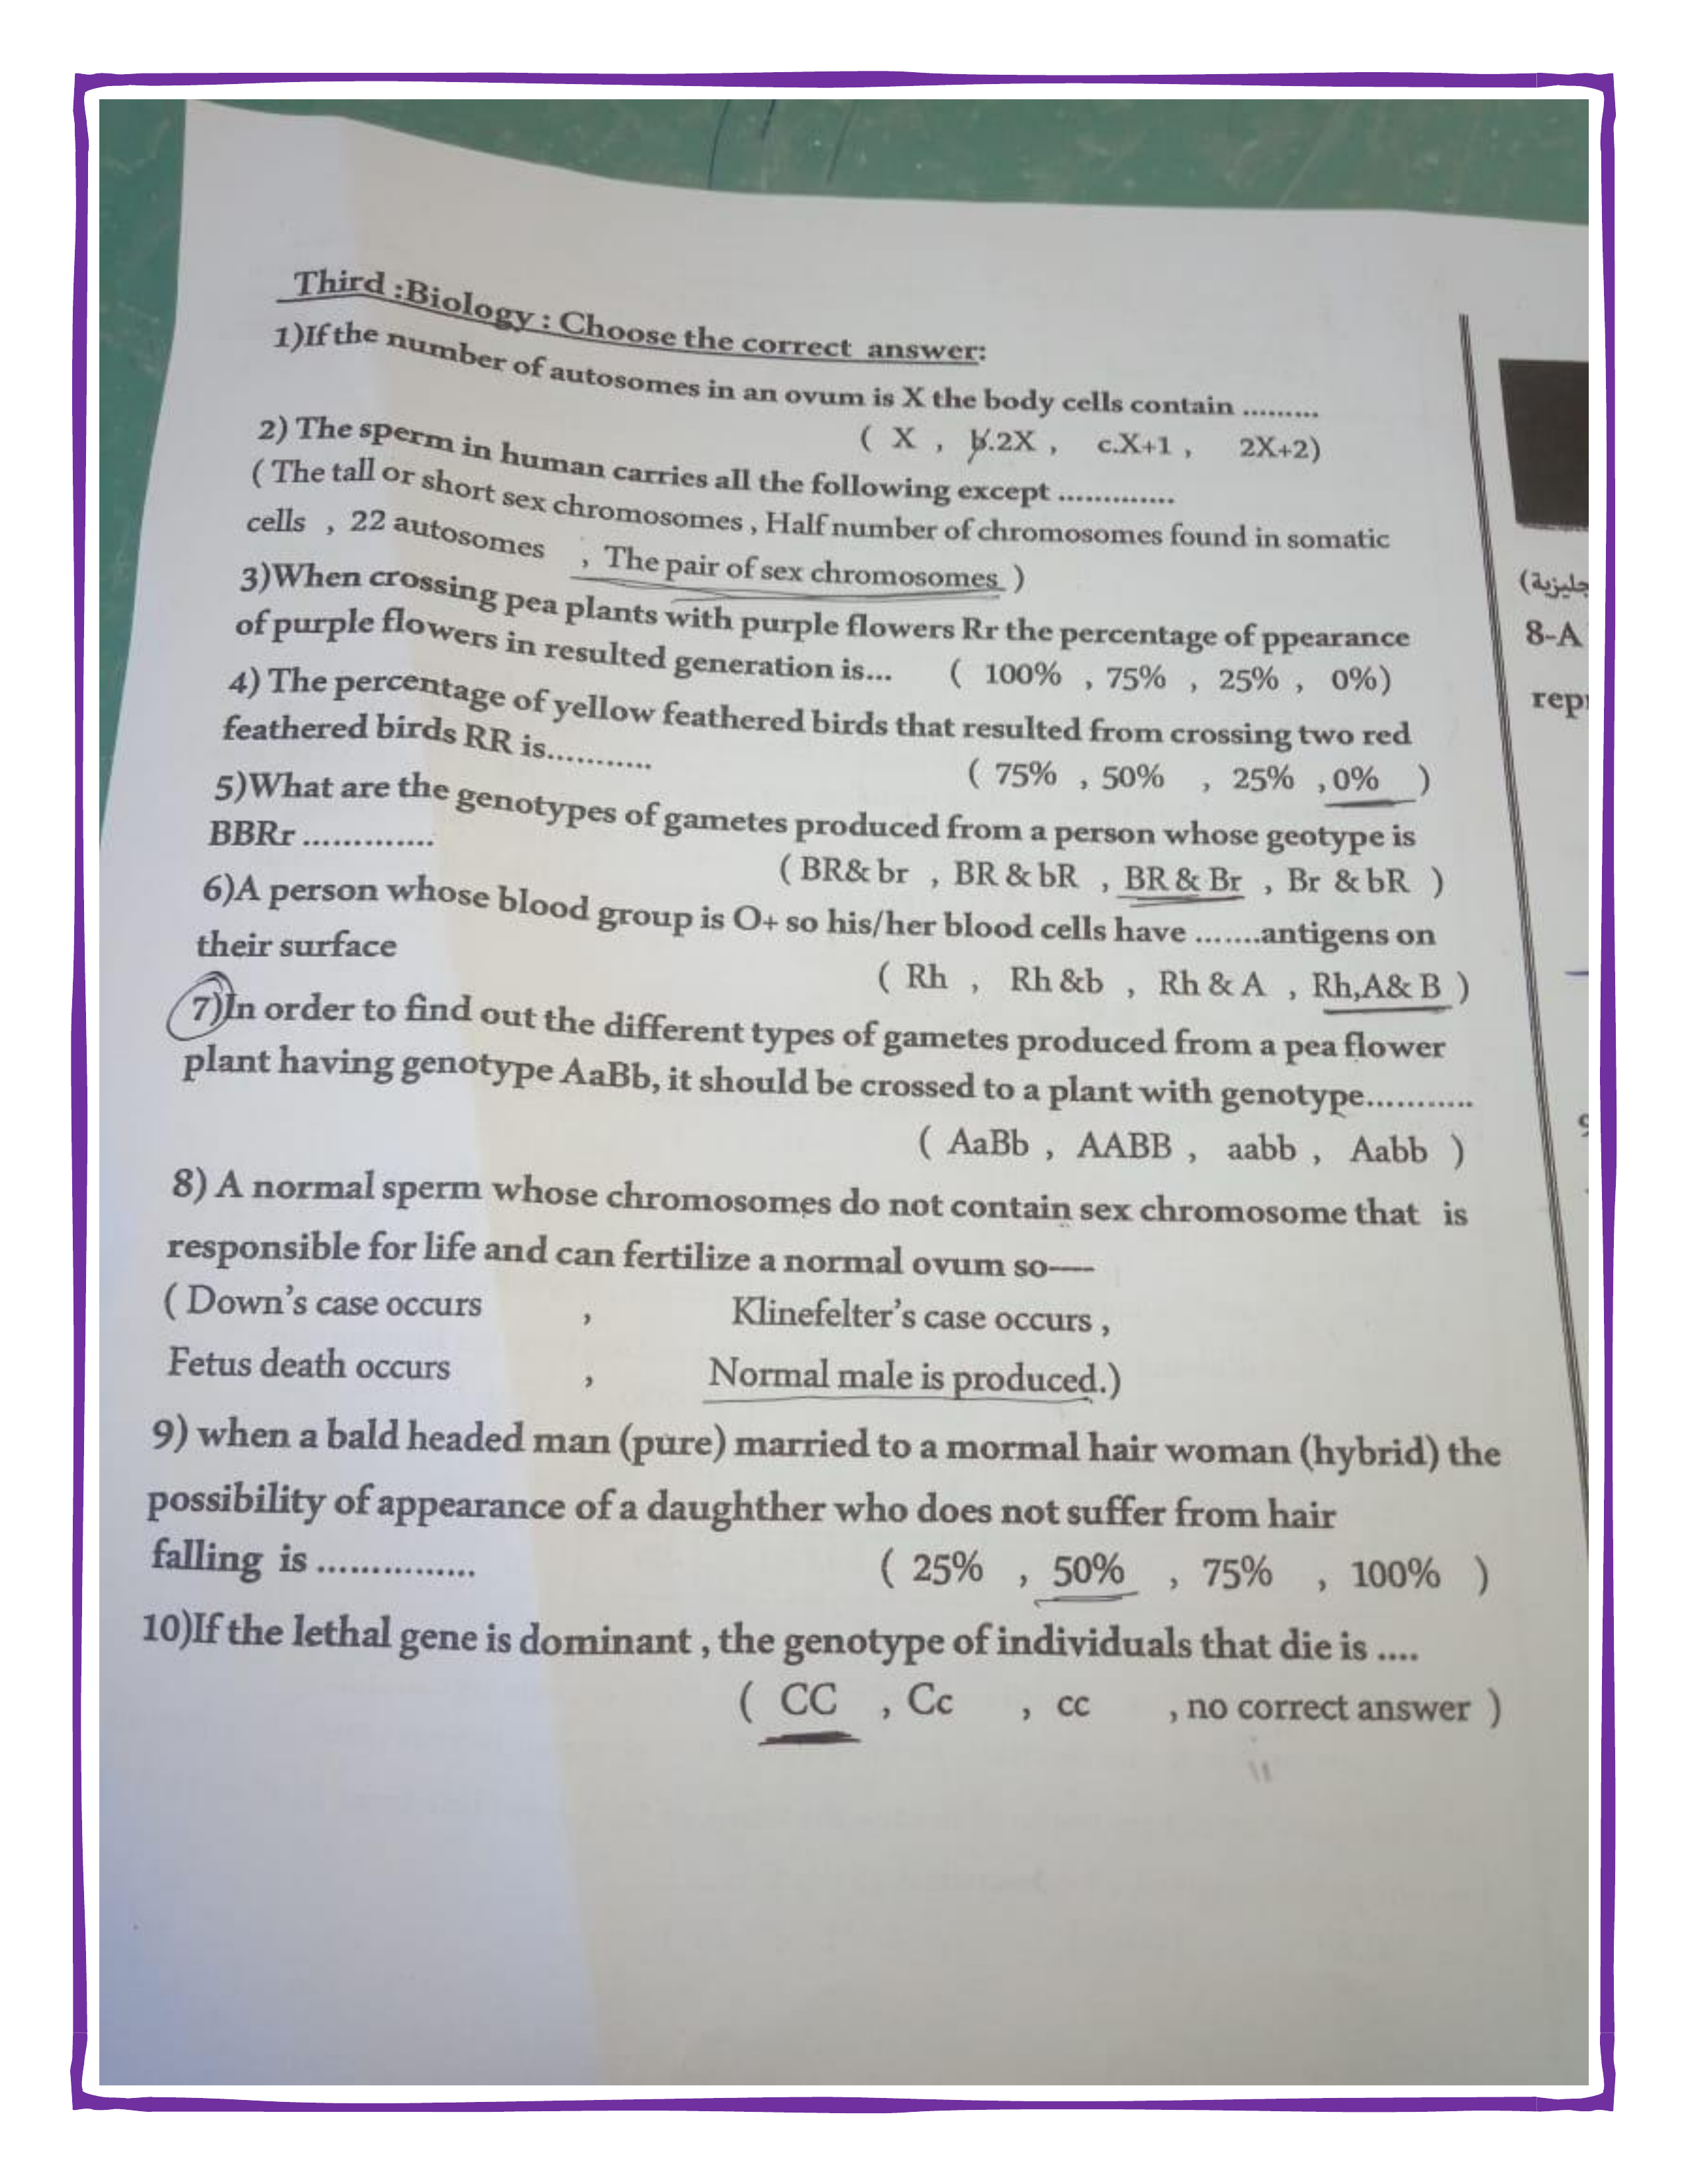 Third :Biology : Choose the correct answer:
1)If the number of autosomes in an ovum is X the body cells contain .........
( X , b.2X , c.X+1 , 2X+2)
2) The sperm in human carries all the following except .............
( The tall or short sex chromosomes , Half number of chromosomes found in somatic
cells , 22 autosomes , The pair of sex chromosomes )
3)When crossing pea plants with purple flowers Rr the percentage of ppearance
of purple flowers in resulted generation is... ( 100% , 75% , 25% , 0%)
4) The percentage of yellow feathered birds that resulted from crossing two red
feathered birds RR is...........
( 75% , 50% , 25% ,0% )
5)What are the genotypes of gametes produced from a person whose geotype is
BBRr .............
( BR& br , BR & bR , BR & Br , Br & bR )
6)A person whose blood group is O+ so his/her blood cells have .......antigens on
their surface
( Rh , Rh &b , Rh & A , Rh,A& B )
7)In order to find out the different types of gametes produced from a pea flower
plant having genotype AaBb, it should be crossed to a plant with genotype...........
( AaBb , AABB , aabb , Aabb )
8) A normal sperm whose chromosomes do not contain sex chromosome that is
responsible for life and can fertilize a normal ovum so----
( Down's case occurs , Klinefelter's case occurs ,
Fetus death occurs , Normal male is produced.)
9) when a bald headed man (pure) married to a mormal hair woman (hybrid) the
possibility of appearance of a daughther who does not suffer from hair
falling is ...............
( 25% , 50% , 75% , 100% )
10)If the lethal gene is dominant , the genotype of individuals that die is ....
( CC , Cc , cc , no correct answer )
8-A